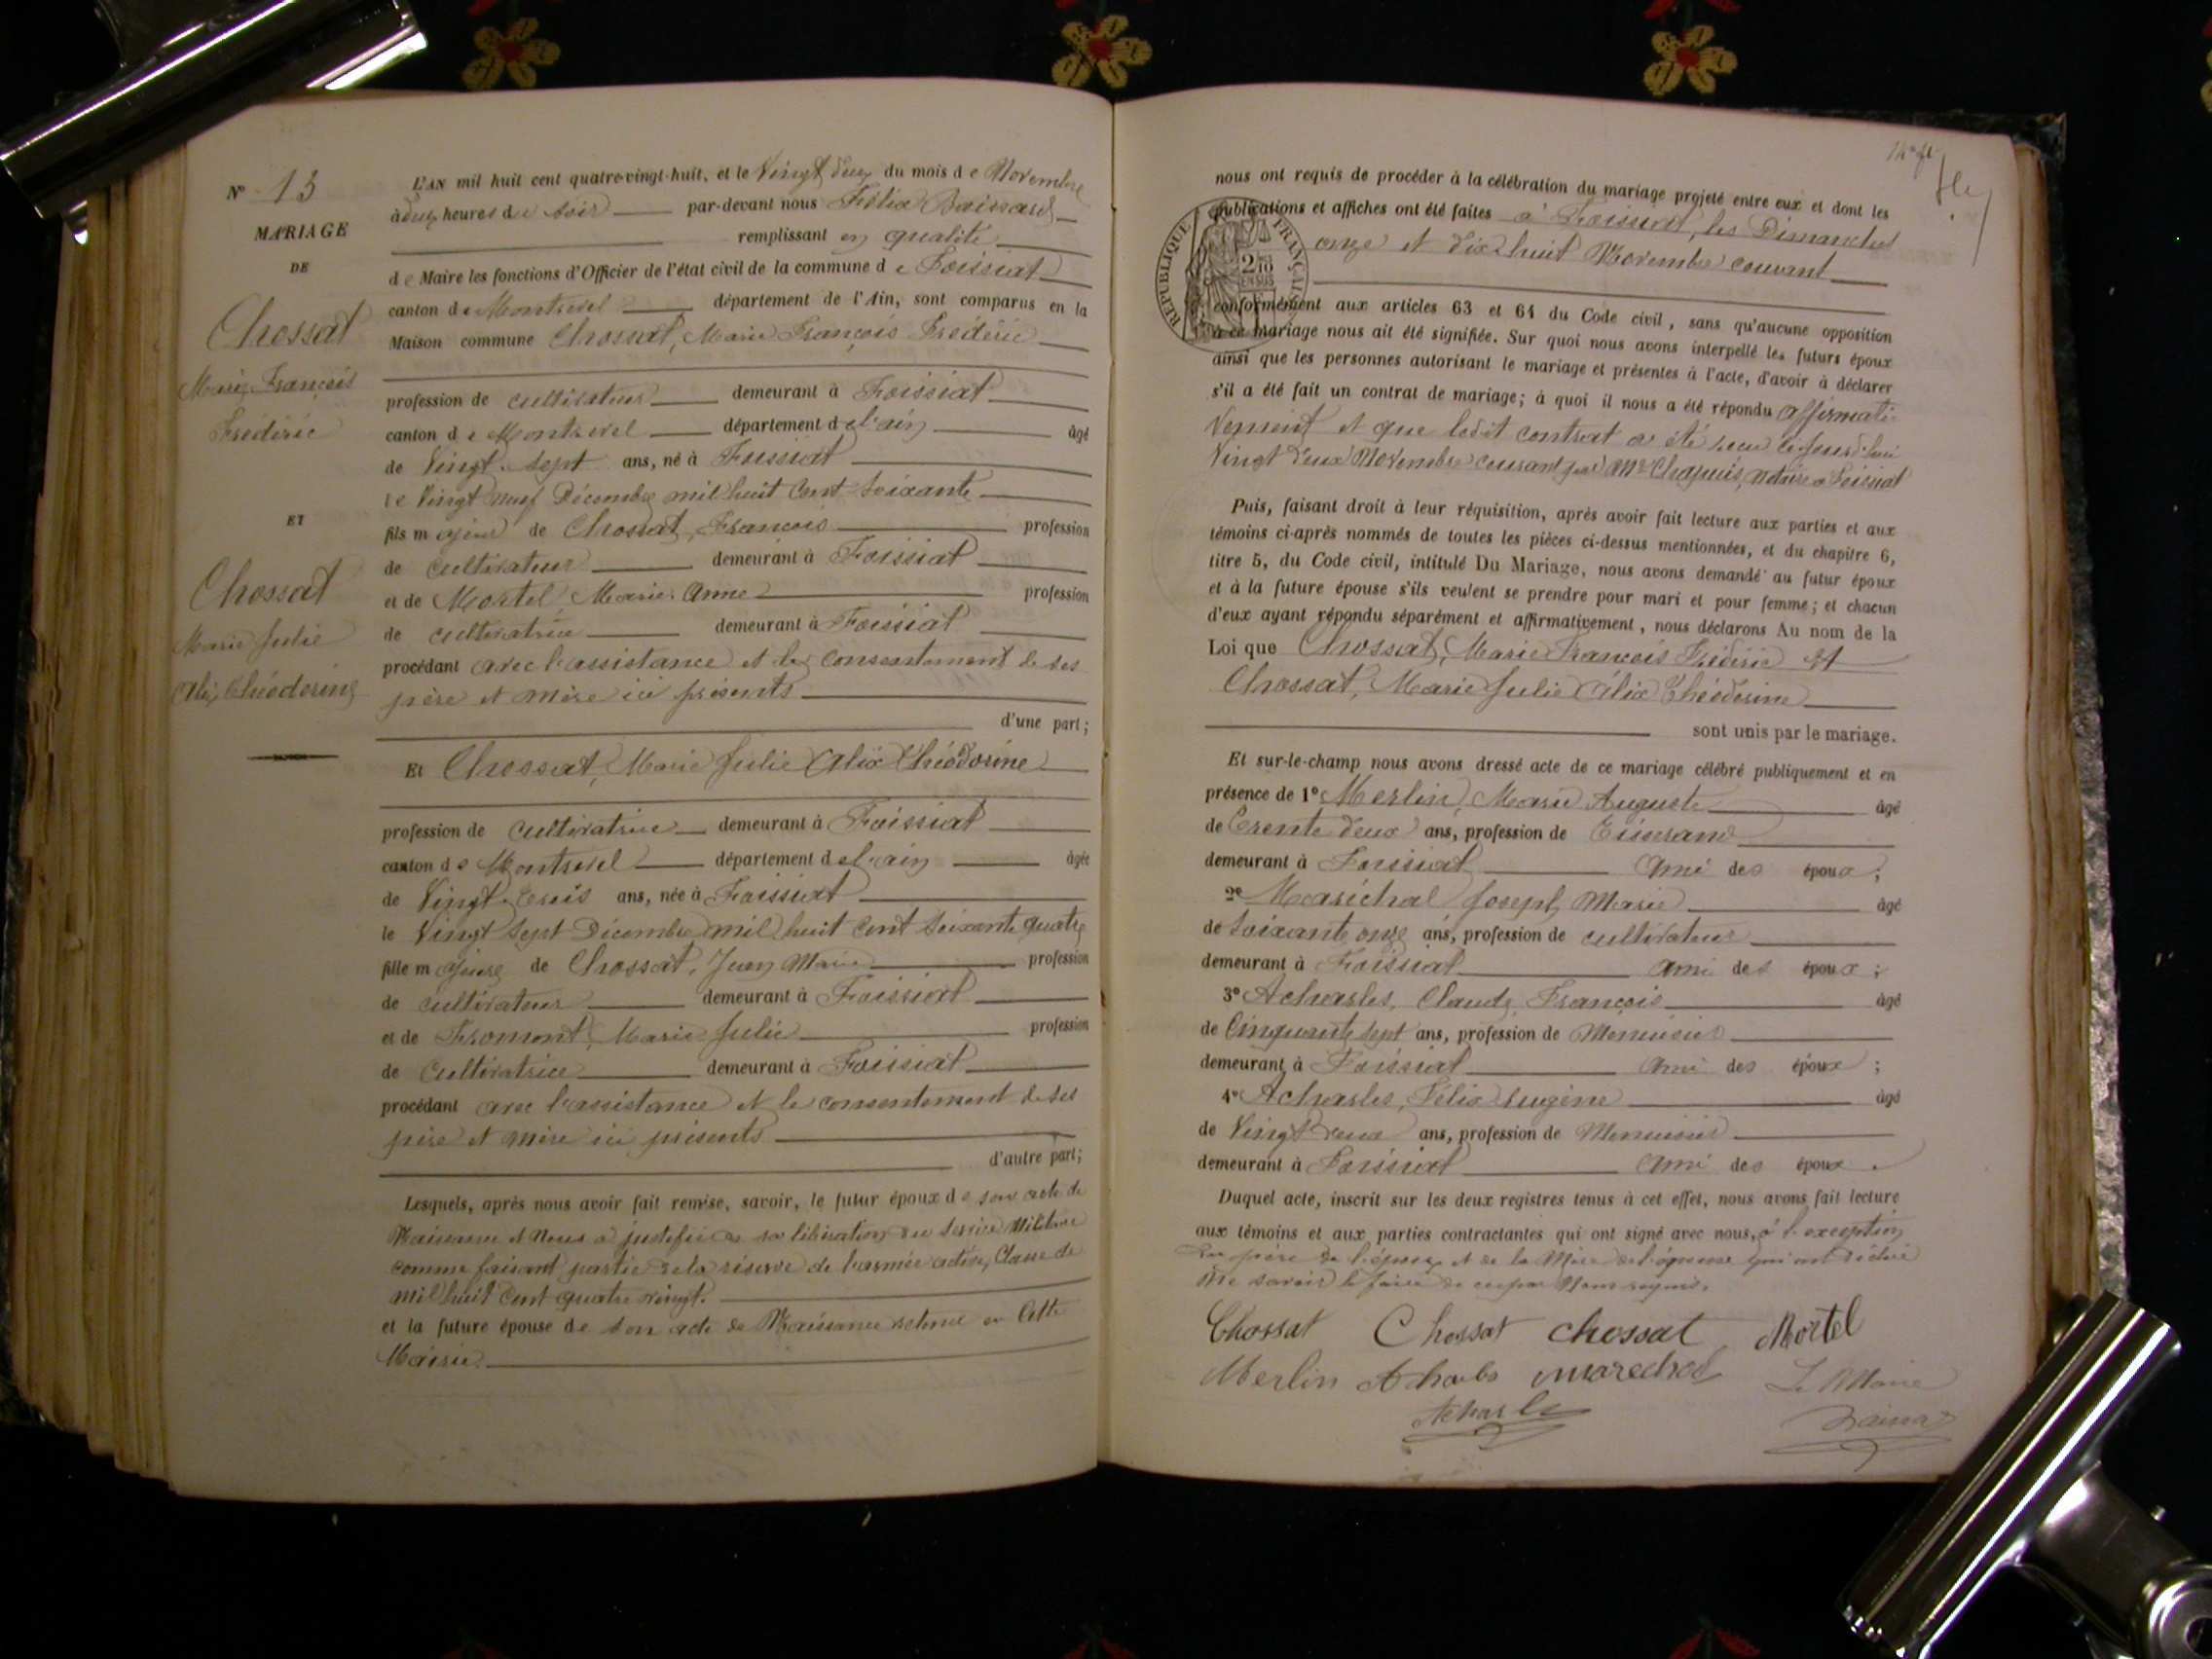 N° 13
MARIAGE
DE
Chossat
Marie François
Frédéric
ET
Chossat
Marie Julie
Alix Théodorine
L'AN mil huit cent quatre-vingt-huit, et le Vingt deux du mois de Novembre
à deux heures du soir par-devant nous Félix
remplissant en qualité
de Maire les fonctions d'Officier de l'état civil de la commune de Foissiat
canton de Montrevel département de l'Ain, sont comparus en la
Maison commune Chossat, Marie François Frédéric
profession de cultivateur demeurant à Foissiat
canton de Montrevel département de l'ain âgé
de Vingt-sept ans, né à Foissiat
le Vingt neuf Décembre mil huit Cent soixante
fils majeur de Chossat, François profession
de cultivateur demeurant à Foissiat
et de Mortel, Marie Anne profession
de cultivatrice demeurant à Foissiat
procédant avec l'assistance et le consentement de ses
père et mère ici présents
d'une part;
Et Chossat, Marie Julie Alix Théodorine
profession de cultivatrice demeurant à Foissiat
canton de Montrevel département de l'ain âgée
de Vingt-trois ans, née à Foissiat
le Vingt sept Décembre mil huit Cent soixante quatre
fille majeure de Chossat, Jean Marie profession
de cultivateur demeurant à Foissiat
et de Fromont, Marie Julie profession
de Cultivatrice demeurant à Foissiat
procédant avec l'assistance et le consentement de ses
père et mère ici présents
d'autre part;
Lesquels, après nous avoir fait remise, savoir, le futur époux de son acte de
Naissance et Nous a justifié de sa libération du service Militaire
comme faisant partie de la réserve de l'armée active, Classe de
mil huit Cent quatre vingt.
et la future épouse de son acte de Naissance retenu en Cette
Mairie.
nous ont requis de procéder à la célébration du mariage projeté entre eux et dont les
publications et affiches ont été faites à Foissiat, les Dimanches
onze et dix-huit Novembre courant
RÉPUBLIQUE FRANÇAISE
2/10
EN SUS
conformément aux articles 63 et 64 du Code civil, sans qu'aucune opposition
à ce mariage nous ait été signifiée. Sur quoi nous avons interpellé les futurs époux
ainsi que les personnes autorisant le mariage et présentes à l'acte, d'avoir à déclarer
s'il a été fait un contrat de mariage; à quoi il nous a été répondu affirmati-
vement et que ledit contrat a été reçu cejourd'hui
Vingt deux Novembre courant par Me Chapuis, notaire à Foissiat
Puis, faisant droit à leur réquisition, après avoir fait lecture aux parties et aux
témoins ci-après nommés de toutes les pièces ci-dessus mentionnées, et du chapitre 6,
titre 5, du Code civil, intitulé Du Mariage, nous avons demandé au futur époux
et à la future épouse s'ils veulent se prendre pour mari et pour femme; et chacun
d'eux ayant répondu séparément et affirmativement, nous déclarons Au nom de la
Loi que Chossat, Marie François Frédéric et
Chossat, Marie Julie Alix Théodorine
sont unis par le mariage.
Et sur-le-champ nous avons dressé acte de ce mariage célébré publiquement et en
présence de 1° Merlin, Marie Auguste âgé
de trente deux ans, profession de Tisserand
demeurant à Foissiat Ami des époux;
2° Maréchal Joseph Marie âgé
de soixante onze ans, profession de cultivateur
demeurant à Foissiat ami des époux;
3° Acharles, Claude François âgé
de Cinquante sept ans, profession de Menuisier
demeurant à Foissiat Ami des époux;
4° Acharles, Félix Eugène âgé
de Vingt deux ans, profession de Menuisier
demeurant à Foissiat Ami des époux.
Duquel acte, inscrit sur les deux registres tenus à cet effet, nous avons fait lecture
aux témoins et aux parties contractantes qui ont signé avec nous, à l'exception
du père de l'époux et de la Mère de l'épouse qui ont déclaré
ne savoir le faire de ce par Nous requis.
Chossat Chossat Chossat Mortel
Merlin Acharles marechal Le Maire
Acharles